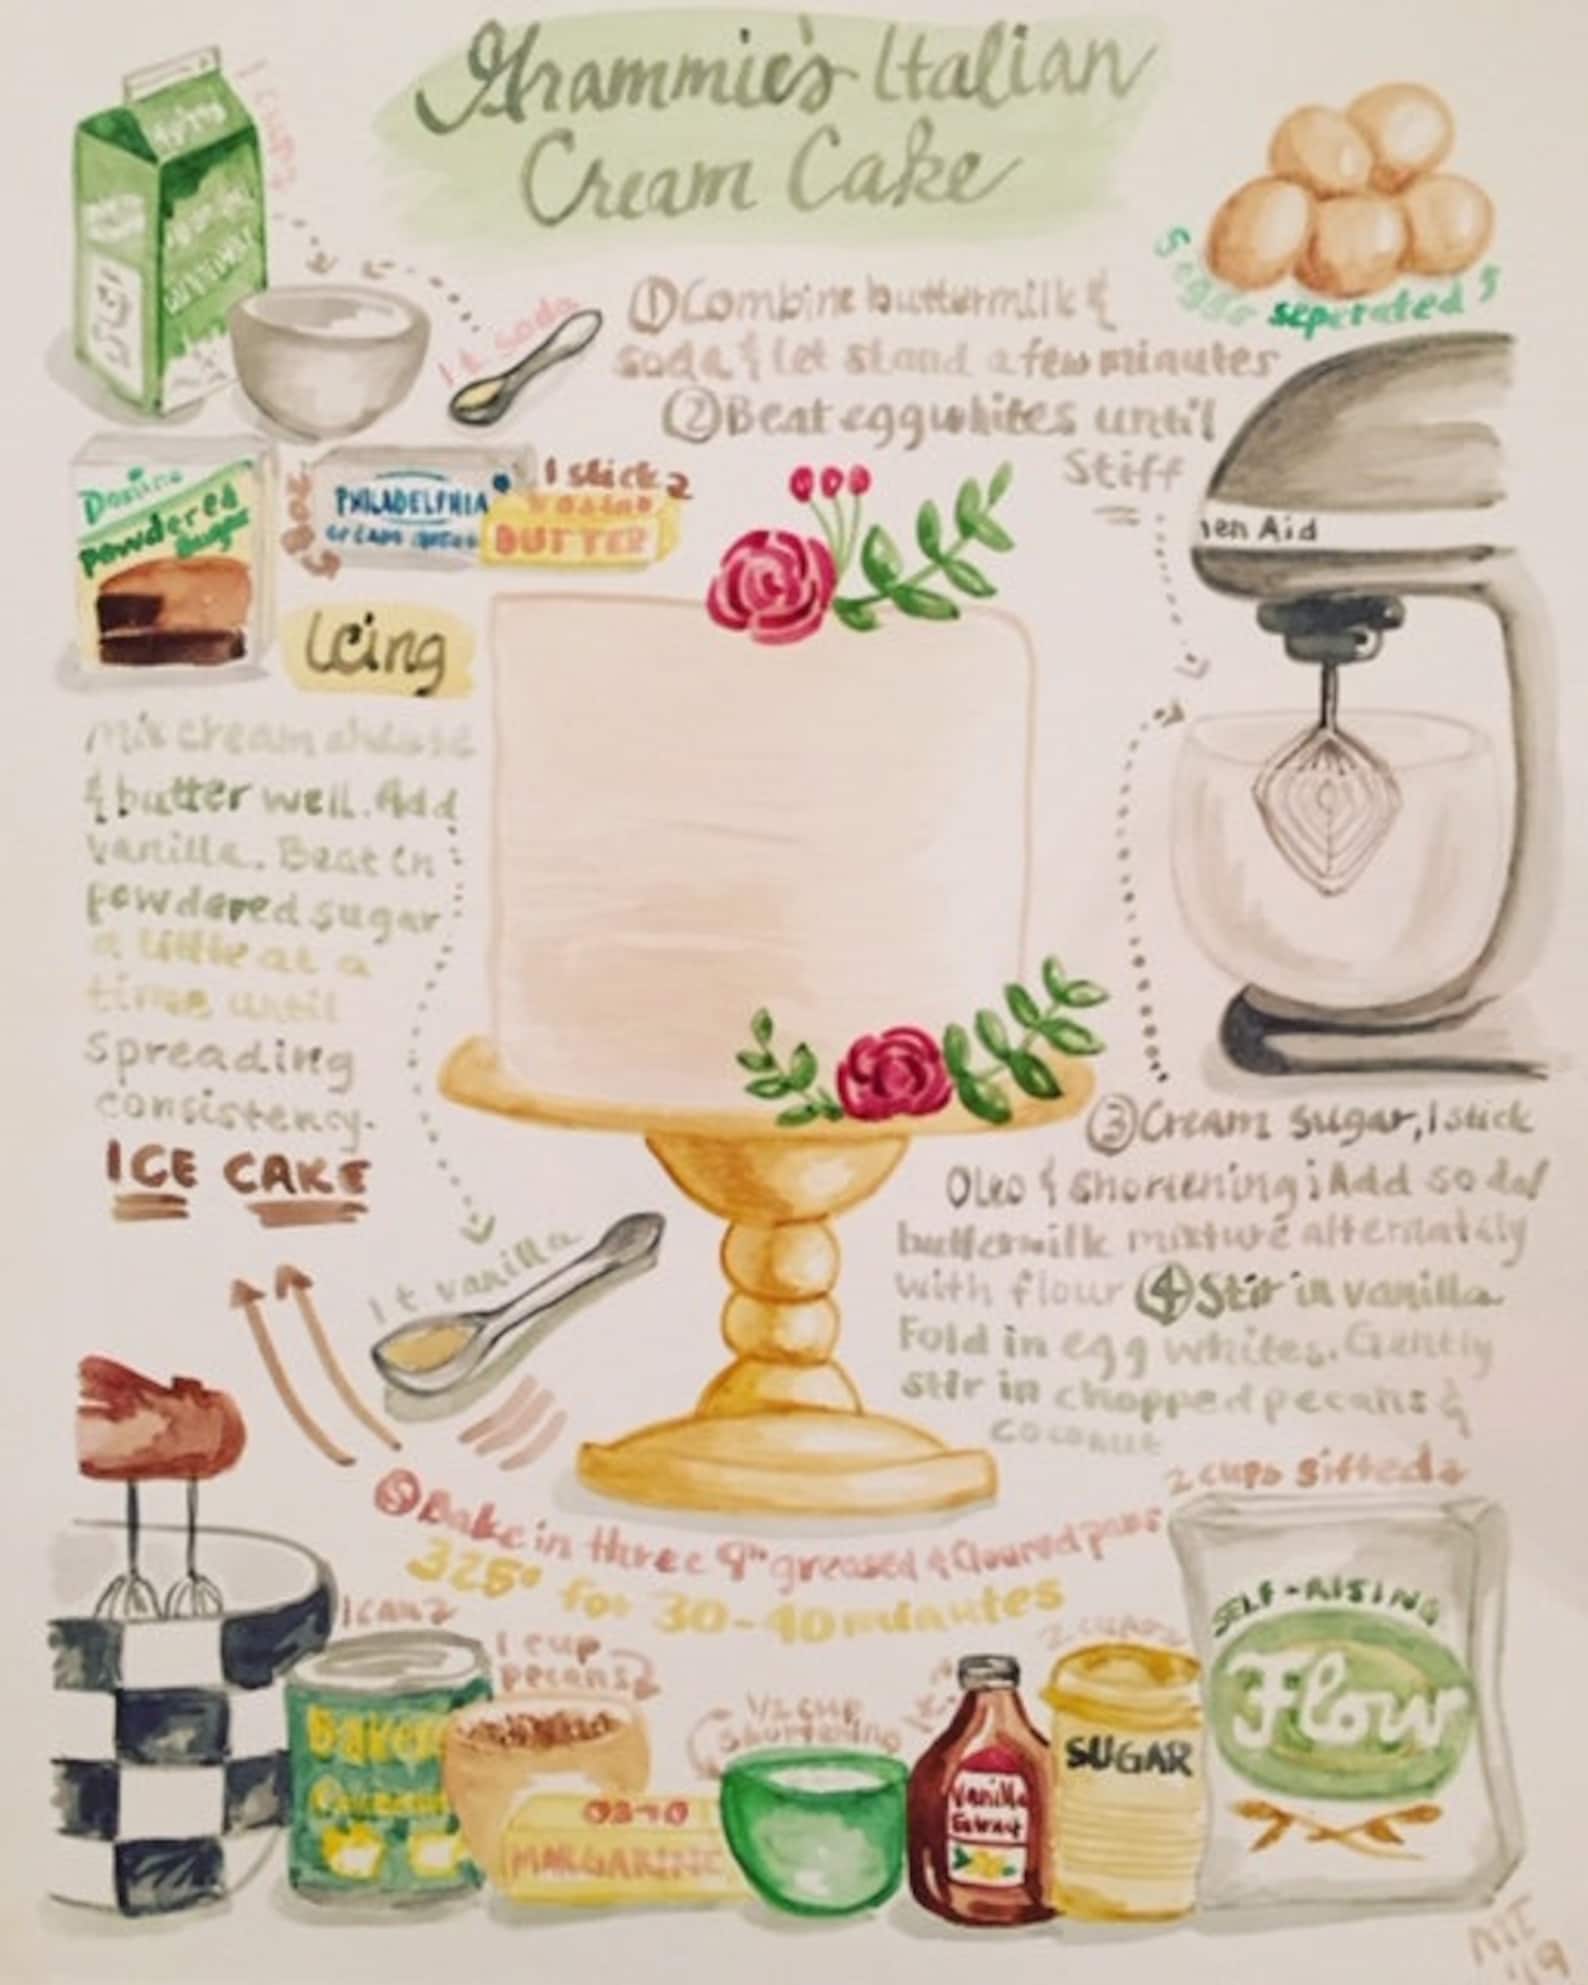 Grammie's Italian
Cream Cake
1 cup
1 t. soda
5 eggs seperated
① Combine buttermilk &
soda & let stand a few minutes
② Beat eggwhites until
Stiff
Domino
Powdered
Sugar
8 oz.
PHILADELPHIA
CREAM CHEESE
1 stick
BUTTER
Icing
hen Aid
Mix cream cheese
& butter well. Add
vanilla. Beat in
powdered sugar
a little at a
time until
spreading
consistency.
ICE CAKE
1 t. vanilla
③ Cream sugar, 1 stick
Oleo & shortening; Add soda/
buttermilk mixture alternately
with flour ④ Stir in vanilla
Fold in egg whites. Gently
stir in chopped pecans &
coconut
⑤ Bake in three 9" greased & floured pans
325° for 30-40 minutes
2 cups sifted
1 can
1 cup
pecans
1/2 cup
shortening
2 cups
Baker's
Coconut
MARGARINE
Vanilla
SUGAR
SELF-RISING
Flour